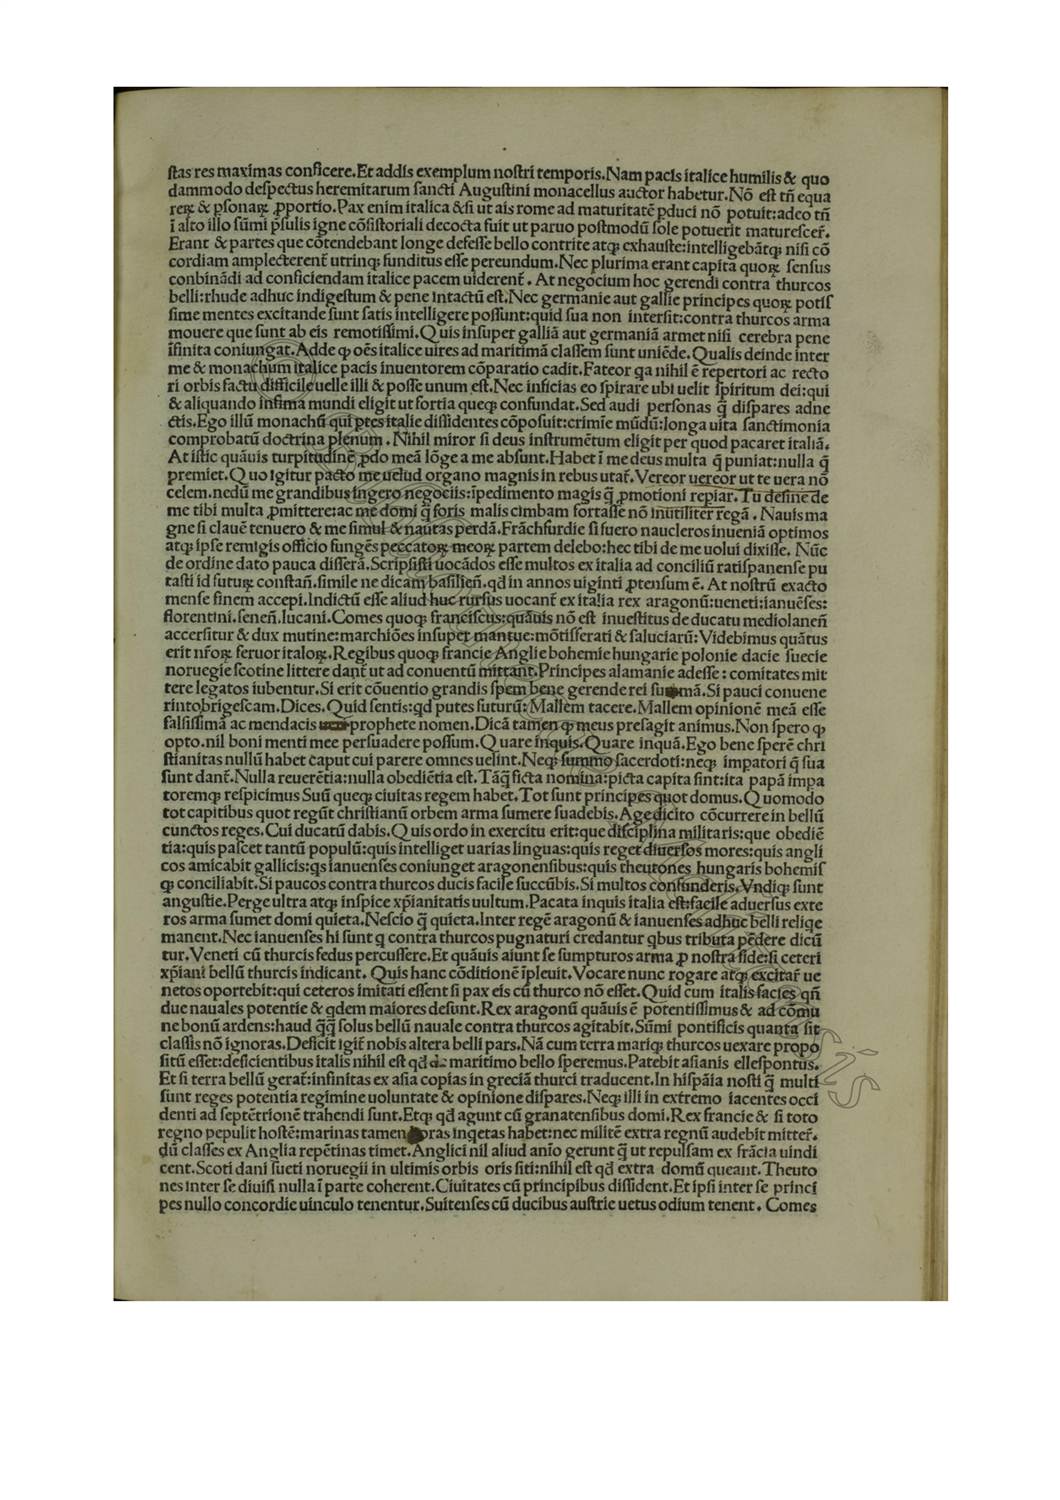 ſtas res maximas conficere. Et addis exemplum noſtri temporis. Nam pacis italice humilis & quo
dammodo deſpectus heremitarum ſancti Auguſtini monacellus auctor habetur. Nō eſt tn̄ equa
reꝝ & ꝑſonaꝝ ꝓportio. Pax enim italica &ſi ut ais rome ad maturitatē ꝑduci nō potuit: adeo tn̄
ī alto illo ſūmi p̄ſulis igne cōſiſtoriali decocta fuit ut paruo poſtmodū ſole potuerit matureſcer̄.
Erant & partes que cōtendebant longe defeſſe bello contrite atqꝫ exhauſte: intelligebātqꝫ niſi cō
cordiam amplecterent̄ utrinqꝫ funditus eſſe pereundum. Nec plurima erant capita quoꝝ ſenſus
conbinādi ad conficiendam italice pacem uiderent̄. At negocium hoc gerendi contra thurcos
belli: rhude adhuc indigeſtum & pene intactū eſt. Nec germanie aut gallie principes quoꝝ potiſ
ſime mentes excitande ſunt ſatis intelligere poſſunt: quid ſua non interſit: contra thurcos arma
mouere que ſunt ab eis remotiſſimi. Quis inſuper galliā aut germaniā armet niſi cerebra pene
īfinita coniungat. Adde ꝙ oēs italice uires ad maritimā claſſem ſunt uniēde. Qualis deinde inter
me & monachum italice pacis inuentorem cōparatio cadit. Fateor qa nihil ē repertori ac recto
ri orbis factu difficile uelle illi & poſſe unum eſt. Nec inficias eo ſpirare ubi uelit ſpiritum dei: qui
& aliquando infima mundi eligit ut fortia queqꝫ confundat. Sed audi perſonas q̄ diſpares adne
ctis. Ego illū monachū qui ptes italie diſſidentes cōpoſuit: crimīe mūdū: longa uita ſanctimonia
comprobatū doctrina plenum. Nihil miror ſi deus inſtrumētum eligit per quod pacaret italiā.
At iſtic quāuis turpitudinē ꝓdo meā lōge a me abſunt. Habet ī me deus multa q̄ puniat: nulla q̄
premiet. Quo igitur pacto me uelud organo magnis in rebus utat̄. Vereor uereor ut te uera nō
celem. nedū me grandibus ingero negociis: īpedimento magis q̄ ꝓmotioni reꝑiar. Tu deſine de
me tibi multa ꝓmittere: ac me domi q̄ foris malis cimbam fortaſſe nō inutiliter regā. Nauis ma
gne ſi clauē tenuero & me ſimul & nautas perdā. Frāchfurdie ſi fuero naucleros inueniā optimos
atqꝫ ipſe remigis officio fungēs peccatoꝝ meoꝝ partem delebo: hec tibi de me uolui dixiſſe. Nūc
de ordine dato pauca diſſerā. Scripſiſti uocādos eſſe multos ex italia ad conciliū ratiſpanenſe pu
taſti id futuꝝ conſtan̄. ſimile ne dicam baſilien̄. qd̄ in annos uiginti ꝓtenſum ē. At noſtrū exacto
menſe finem accepi. Indictū eſſe aliud huc rurſus uocant̄ ex italia rex aragonū: ueneti: ianuēſes:
florentini. ſenen̄. lucani. Comes quoqꝫ franciſcus: quāuis nō eſt inueſtitus de ducatu mediolanen̄
accerſitur & dux mutine: marchiōes inſuper mantue: mōtiſferati & ſaluciarū: Videbimus quātus
erit nr̄oꝝ feruor italoꝝ. Regibus quoqꝫ francie Anglie bohemie hungarie polonie dacie ſuecie
noruegie ſcotine littere dant̄ ut ad conuentū mittant. Principes alamanie adeſſe: comitates mit
tere legatos iubentur. Si erit cōuentio grandis ſpem bene gerende rei ſumā. Si pauci conuene
rint obrigeſcam. Dices. Quid ſentis: qd̄ putes futurū: Mallem tacere. Mallem opinionē meā eſſe
falſiſſimā ac mendacis prophete nomen. Dicā tamen ꝙ meus preſagit animus. Non ſpero ꝙ
opto. nil boni menti mee perſuadere poſſum. Quare inquis. Quare inquā. Ego bene ſperē chri
ſtianitas nullū habet caput cui parere omnes uelint. Neqꝫ ſummo ſacerdoti: neqꝫ impatori q̄ ſua
ſunt dant̄. Nulla reuerētia: nulla obediētia eſt. Tāq̄ ficta nomina: picta capita ſint: ita papā impa
toremqꝫ reſpicimus Suū queqꝫ ciuitas regem habet. Tot ſunt principes quot domus. Quomodo
tot capitibus quot regūt chriſtianū orbem arma ſumere ſuadebis. Age dicito cōcurrere in bellū
cunctos reges. Cui ducatū dabis. Quis ordo in exercitu erit: que diſciplina militaris: que obediē
tia: quis paſcet tantū populū: quis intelliget uarias linguas: quis reget diuerſos mores: quis angli
cos amicabit gallicis: qs ianuenſes coniunget aragonenſibus: quis theutones hungaris bohemiſ
qꝫ conciliabit. Si paucos contra thurcos ducis facile ſuccūbis. Si multos confunderis. Vndiqꝫ ſunt
anguſtie. Perge ultra atqꝫ inſpice xp̄ianitatis uultum. Pacata inquis italia eſt: facile aduerſus exte
ros arma ſumet domi quieta. Neſcio q̄ quieta. Inter regē aragonū & ianuenſes adhuc belli reliqe
manent. Nec ianuenſes hi ſunt q contra thurcos pugnaturi credantur qbus tributa pēdere dicū
tur. Veneti cū thurcis fedus percuſſere. Et quāuis aiunt ſe ſumpturos arma ꝓ noſtra fide: ſi ceteri
xp̄iani bellū thurcis indicant. Quis hanc cōditionē īpleuit. Vocare nunc rogare atqꝫ excitar̄ ue
netos oportebit: qui ceteros imitati eſſent ſi pax eis cū thurco nō eſſet. Quid cum italis facies qn̄
due nauales potentie & qdem maiores deſunt. Rex aragonū quāuis ē potentiſſimus & ad cōmu
ne bonū ardens: haud q̄q̄ ſolus bellū nauale contra thurcos agitabit. Sūmi pontificis quanta ſit
claſſis nō ignoras. Deficit igit̄ nobis altera belli pars. Nā cum terra mariqꝫ thurcos uexare propo
ſitū eſſet: deficientibus italis nihil eſt qd̄ de maritimo bello ſperemus. Patebit aſianis elleſpontus.
Et ſi terra bellū gerat̄: infinitas ex aſia copias in greciā thurci traducent. In hiſpāia noſti q̄ multi
ſunt reges potentia regimine uoluntate & opinione diſpares. Neqꝫ illi in extremo iacentes occi
denti ad ſeptētrionē trahendi ſunt. Etqꝫ qd̄ agunt cū granatenſibus domi. Rex francie & ſi toto
regno pepulit hoſtē: marinas tamen oras inqetas habet: nec militē extra regnū audebit mitter̄.
dū claſſes ex Anglia repētinas timet. Anglici nil aliud anīo gerunt q̄ ut repulſam ex frācia uindi
cent. Scoti dani ſueti noruegii in ultimis orbis oris ſiti: nihil eſt qd̄ extra domū queant. Theuto
nes inter ſe diuiſi nulla ī parte coherent. Ciuitates cū principibus diſſident. Et ipſi inter ſe princi
pes nullo concordie uinculo tenentur. Suitenſes cū ducibus auſtrie uetus odium tenent. Comes